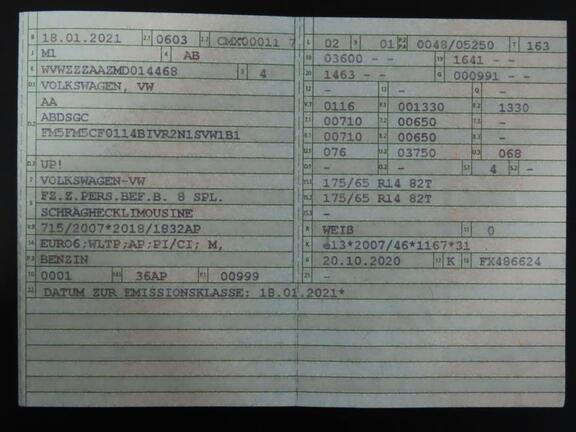 B 18.01.2021 2.1 0603 2.2 CMX00011 7
J M1 4 AB
E WVWZZZAAZMD014468 3 4
D.1 VOLKSWAGEN, VW
AA
D.2 ABDSGC
FM5FM5CF0114BIVR2N1SVW1B1
D.3 UP!
2 VOLKSWAGEN-VW
5 FZ.Z.PERS.BEF.B. 8 SPL.
SCHRÄGHECKLIMOUSINE
V.9 715/2007*2018/1832AP
14 EURO6;WLTP;AP;PI/CI; M,
P.3 BENZIN
10 0001 14.1 36AP P.1 00999
22 DATUM ZUR EMISSIONSKLASSE: 18.01.2021*
L 02 9 01 P.2 P.4 0048/05250 T 163
18 03600 - - 19 1641 - -
20 1463 - - G 000991 - -
12 - 13 - Q -
V.7 0116 F.1 001330 F.2 1330
7.1 00710 7.2 00650 7.3 -
8.1 00710 8.2 00650 8.3 -
U.1 076 U.2 03750 U.3 068
O.1 - O.2 - S.1 4 S.2 -
15.1 175/65 R14 82T
15.2 175/65 R14 82T
15.3 -
R WEIß 11 0
K e13*2007/46*1167*31
6 20.10.2020 17 K 16 FX486624
21 -